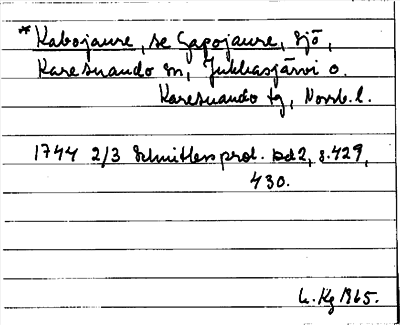 *Kabojaure, se Gapojaure, sjö,
Karesuando sn, Jukkasjärvi o.
Karesuando tg, Norrb. l.
1744 2/3 Schnitlers prot. bd 2, s. 429,
430.
L. Kg 1965.